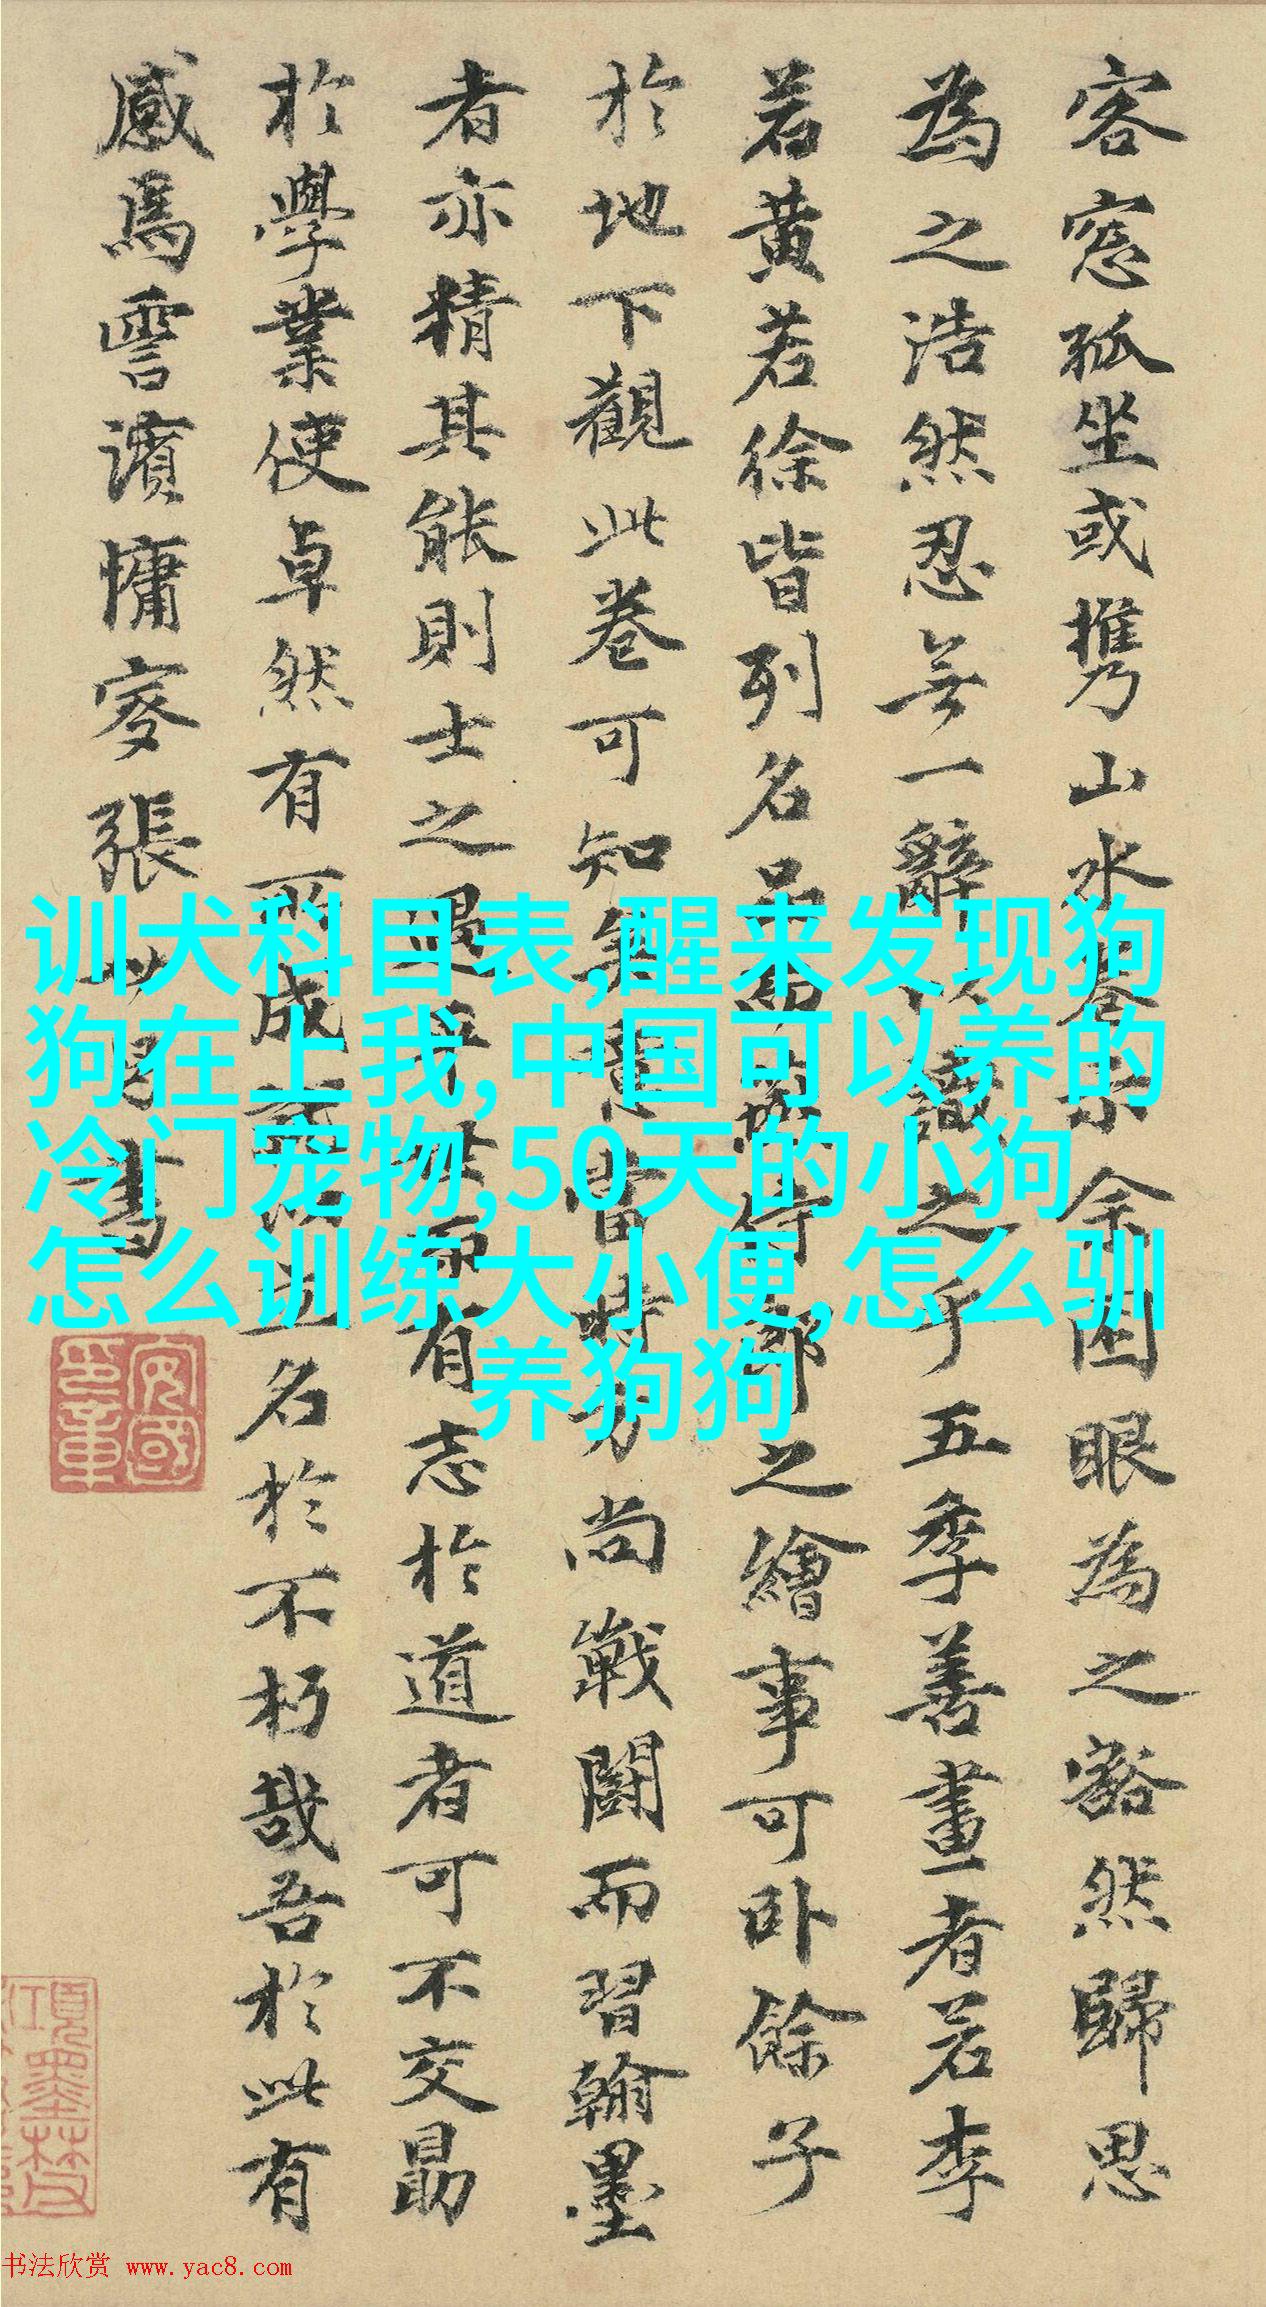 客窓孤坐或携山水卷示余困眼為之豁然歸思
為之浩然忍無一辭以識之乎五季善畫者若李
若黄若徐皆列名品而侍郎之繪事可卧餘子
於地下觀此卷可知矣意當時方尚戰鬪而習翰墨
者亦精其能則士之遇乎世而有志於道者可不交勗
於學業使卓然有所成就以立名於不朽哉吾於此有
感焉霅濱慵叟張世昌書
训犬科目表,醒来发现狗
狗在上我,中国可以养的
冷门宠物,50天的小狗
怎么训练大小便,怎么驯
养狗狗
书法欣赏 www.yac8.com